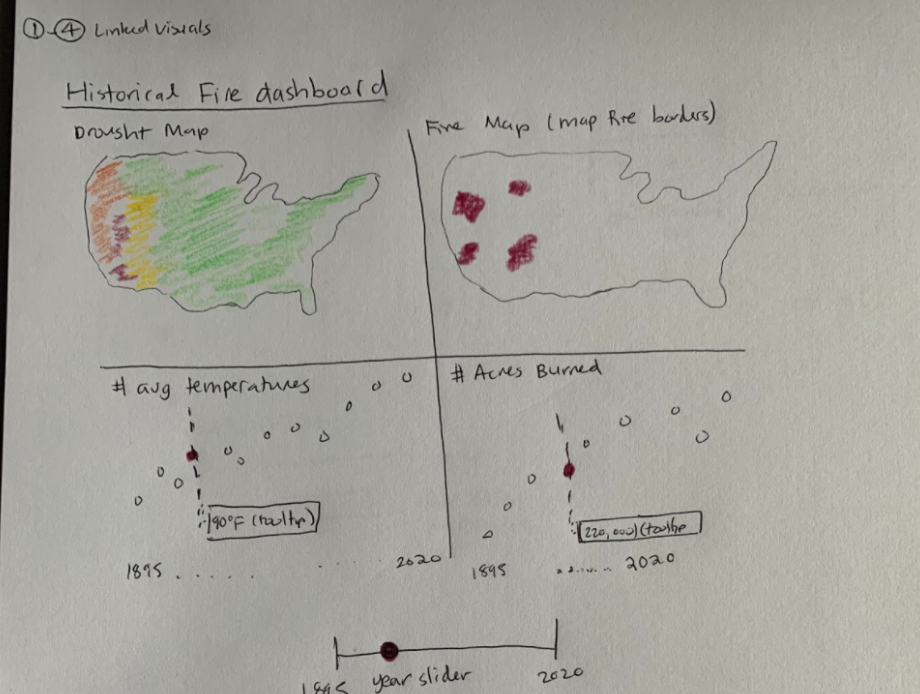 ①-④ Linked visuals
Historical Fire dashboard
Drought Map
Fire Map (map fire borders)
# avg temperatures
90°F (tooltip)
1895 . . . . . . . . . 2020
# Acres Burned
220,000 (tooltip
1895 ......... 2020
1895 year slider 2020